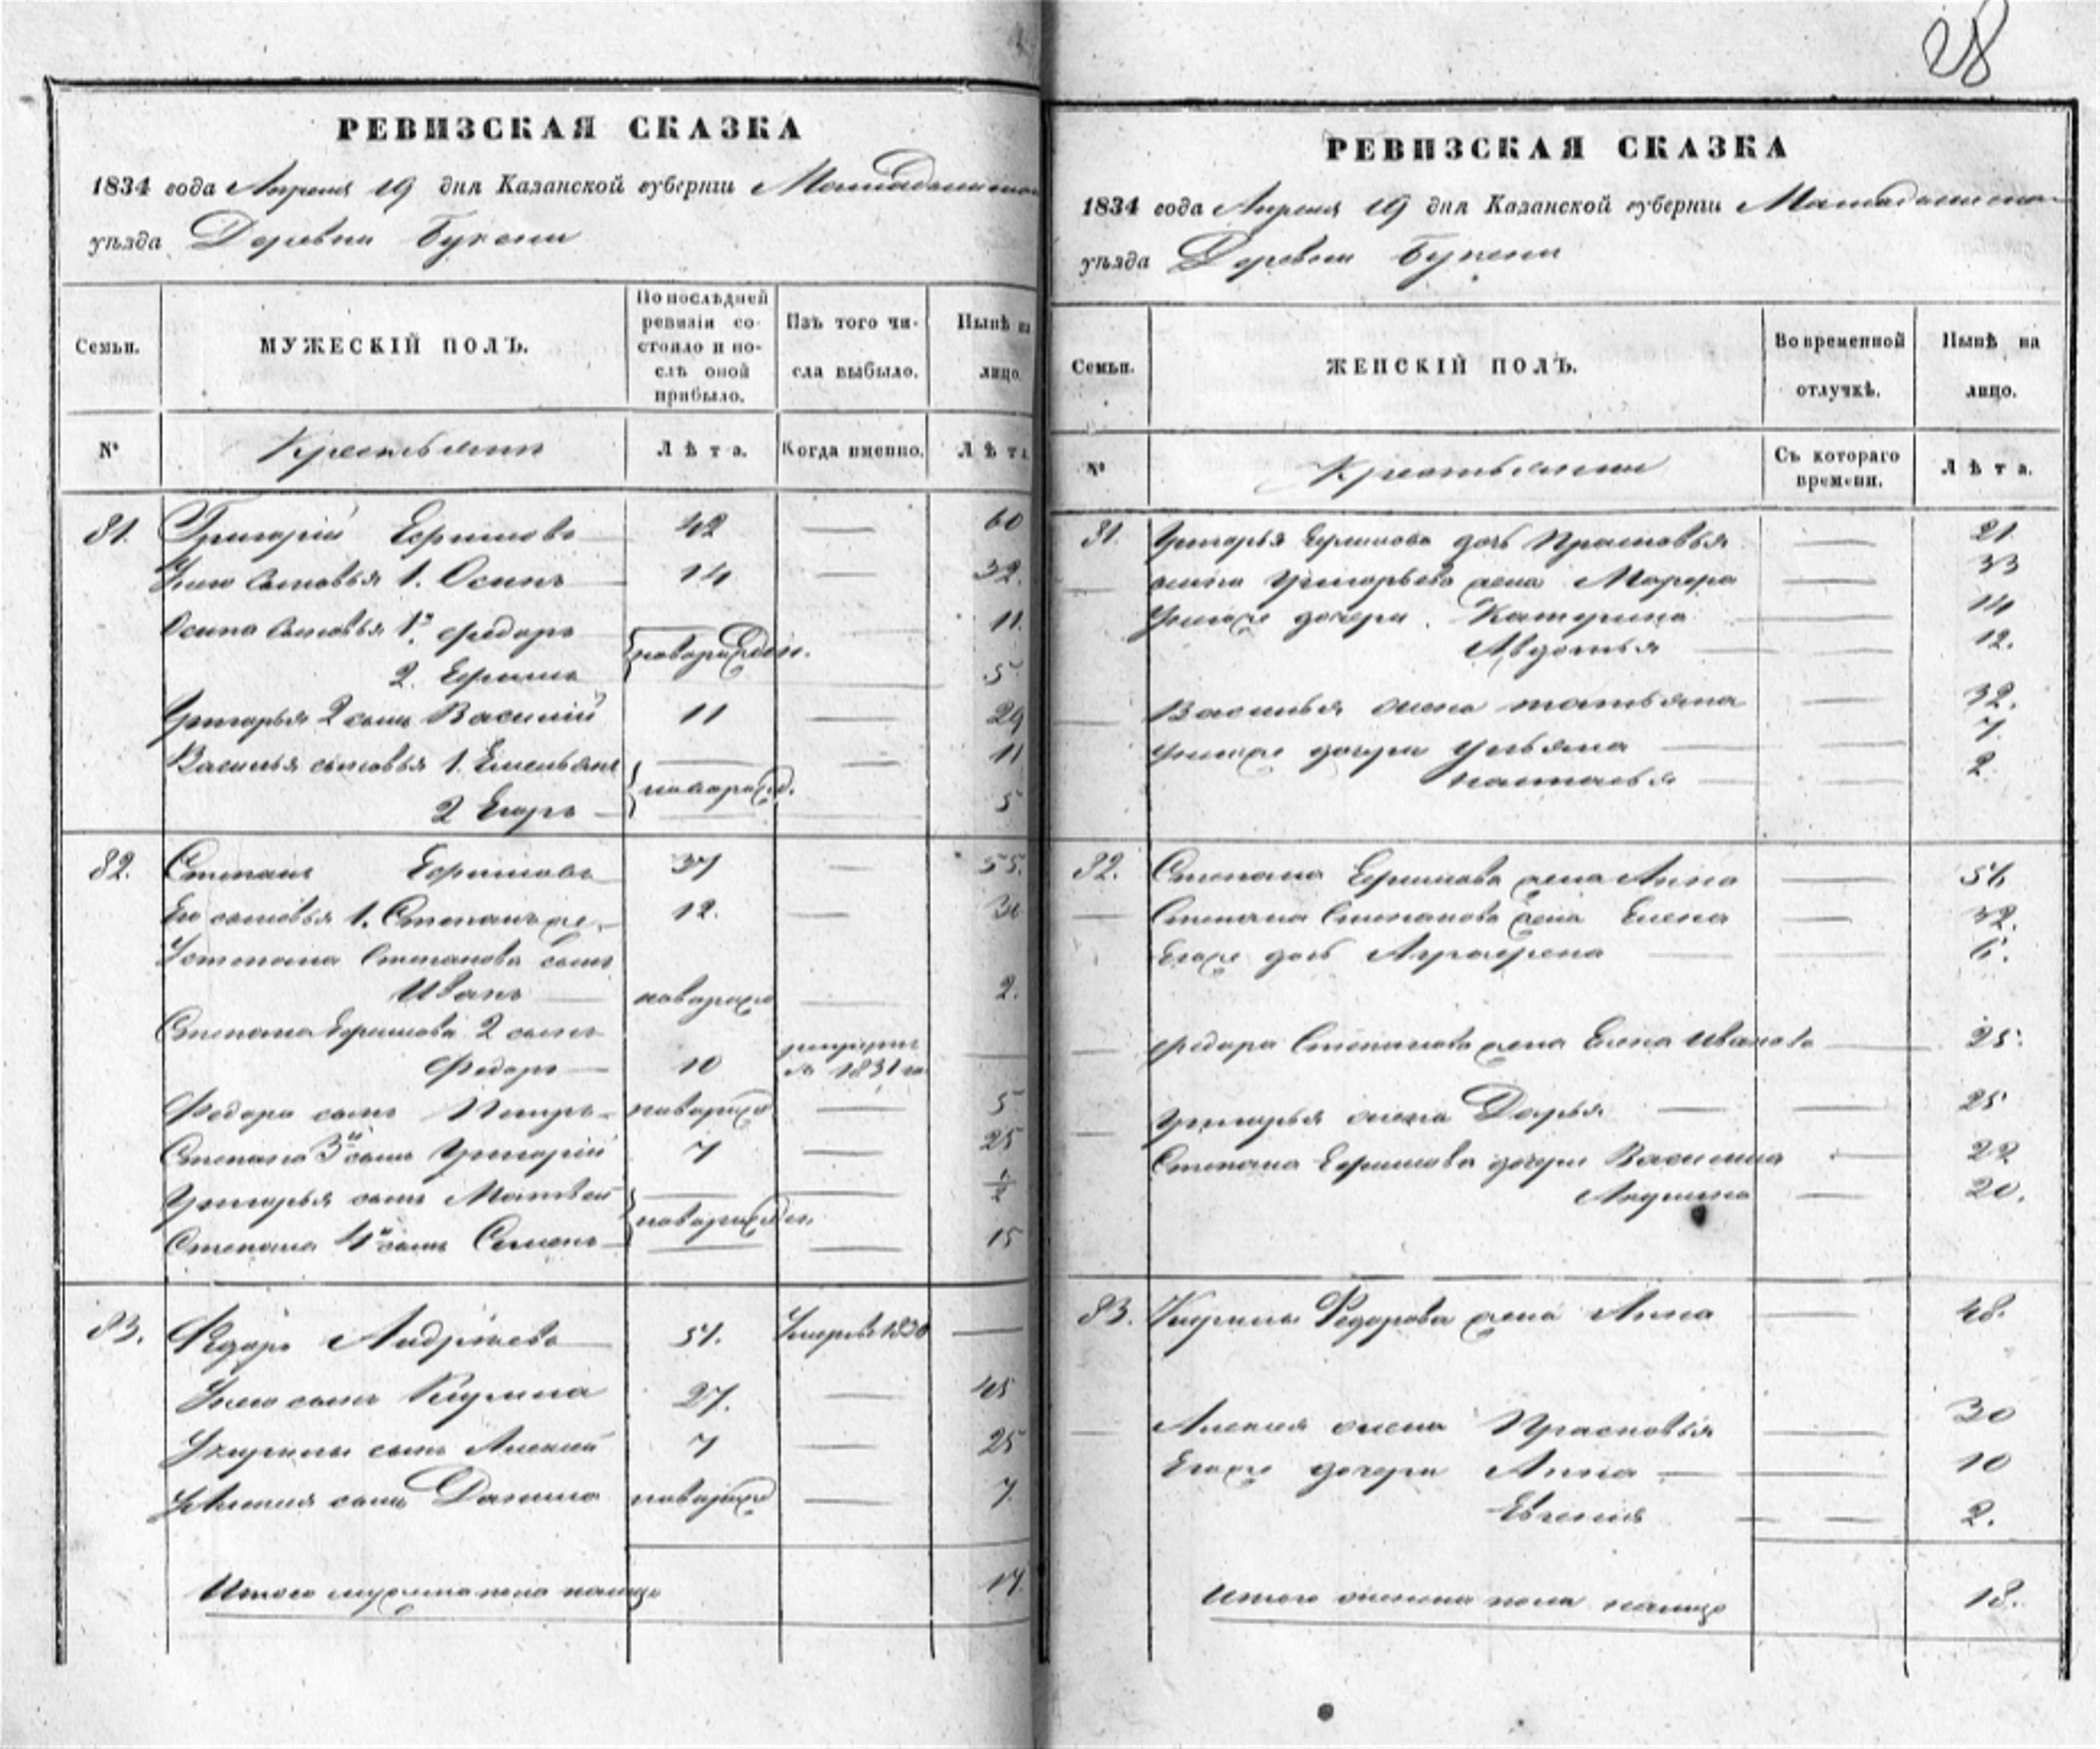 28
РЕВИЗСКАЯ СКАЗКА
1834 года Апреля 19 дня Казанской губерніи
уѣзда Деревни Букени
Семьи.
МУЖЕСКІЙ ПОЛЪ.
По послѣдней ревизіи состояло и послѣ оной прибыло.
Изъ того числа выбыло.
Нынѣ на лицо.
№
Крестьянин
Лѣта.
Когда именно.
Лѣта.
81. Григорій Ефимовъ 42 — 60
Унего сыновья 1. Осипъ 14 — 32.
Осипа сыновья 1й Федоръ новорожден. 11.
2. Ефимъ — 5
Григорья 2 сынъ Василий 11 — 29
Василья сыновья 1. Емельянъ новорожд. — 11
2 Егоръ — 5
82. Степанъ Ефимовъ 37 — 55.
Его сыновья 1. Степанъ же 12. — 30
Устепана Степанова сынъ
Иванъ новорож — 2.
Степана Ефимова 2 сынъ
Федоръ 10 в 1831 го —
Федора сынъ Петръ новорож — 5
Степана 3й сынъ Григорій 7 — 25
Григорья сынъ Матвей — 1/2
новорожден.
Степана 4й сынъ Семенъ — 15
83. Федоръ Андреевъ 51. Умеръ в 1830 —
Унего сынъ Кирила 27. — 45
Укирилы сынъ Алексей 7 — 25
Уалексия сынъ Данила новорож — 7.
Итого мужеска пола налицо 17.
РЕВИЗСКАЯ СКАЗКА
1834 года Апреля 19 дня Казанской губерніи
уѣзда Деревни Букени
Семьи.
ЖЕНСКІЙ ПОЛЪ.
Во временной отлучкѣ.
Нынѣ на лицо.
№
Съ котораго времени.
Лѣта.
81. Григорья Ефимова дочь Прасковья — 21
осипа Григорьева жена Марфа — 33
Унихже дочери Катерина — 14
Авдотья — 12.
Василья жена татьяна — 32.
Унихже дочери Ульяна — 7
наталья — 2.
82. Степана Ефимова жена Анна — 56
Степана Степанова жена Елена — 32.
Егоже дочь Аграфена — 6.
Федора Степанова жена Елена Иванова — 25.
Григорья жена Дарья — 25
Степана Ефимова дочери Василиса — 22
Акулина — 20.
83. Кирилы Федорова жена Анна — 48.
Алексия жена Прасковья — 30
Егоже дочери Анна — 10
Евгения — 2.
Итого женска пола налицо 18.